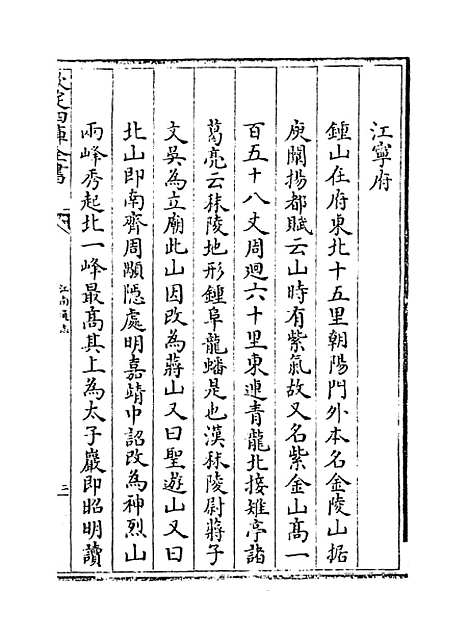 江寧府
鍾山在府東北十五里朝陽門外本名金陵山据
庾闡揚都賦云山時有紫氣故又名紫金山髙一
百五十八丈周廻六十里東連青龍北接雉亭諸
葛亮云秣陵地形鍾阜龍蟠是也漢秣陵尉蔣子
文吳為立廟此山因改為蔣山又曰聖遊山又曰
北山即南齊周顒隠處明嘉靖中詔改為神烈山
兩峰秀起北一峰最髙其上為太子巖即昭明讀
欽定四庫全書
江南通志
三